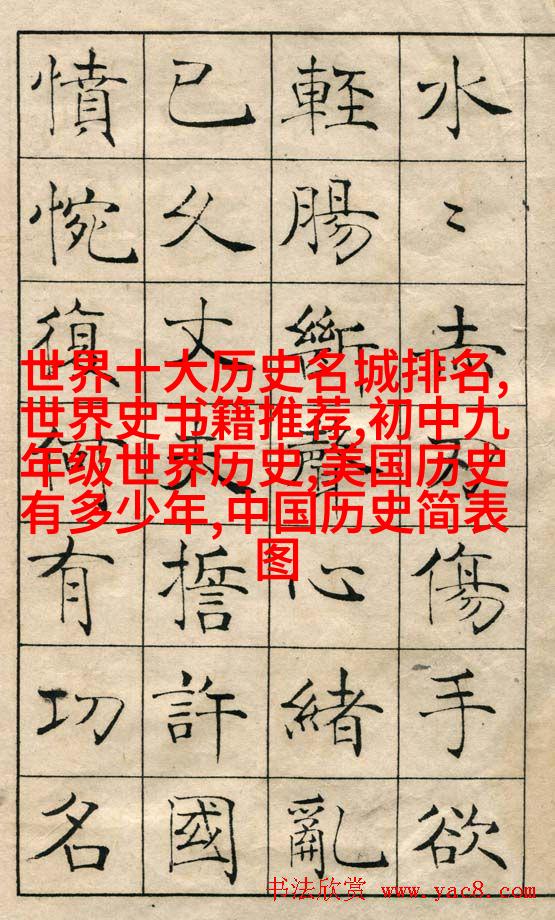 水〻赤刃傷手欲
輕腸斷聲心緒亂
已久丈夫誓許國
憤惋復何有功名
世界十大历史名城排名,
世界史书籍推荐,初中九
年级世界历史,美国历史
有多少年,中国历史简表
图
书法欣赏 www.yac8.com